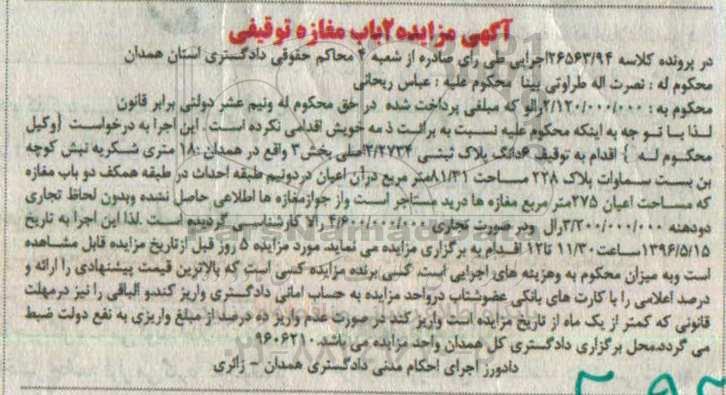 آگهی مزایده ۲باب مغازه توقیفی
در پرونده کلاسه ۲۶۵۶۳/۹۴اجرایی طی رای صادره از شعبه ۴ محاکم حقوقی دادگستری استان همدان
محکوم له : نصرت اله طراوتی بینا محکوم علیه : عباس ریحانی
محکوم به : ۲/۱۲۰/۰۰۰/۰۰۰ریال که مبلغی پرداخت شده در حق محکوم له ونیم عشر دولتی برابر قانون
لذا با تو جه به اینکه محکوم علیه نسبت به برائت ذمه خویش اقدامی نکرده است . این اجرا به درخواست {وکیل
محکوم له } اقدام به توقیف ۶دانگ پلاک ثبتی ۳/۲۷۳۴اصلی بخش۳ واقع در همدان :۱۸ متری شکریه نبش کوچه
بن بست سماوات پلاک ۲۲۸ مساحت ۸۱/۳۱متر مربع دران اعیان دردونیم طبقه احداث در طبقه همکف دو باب مغازه
که مساحت اعیان ۲۷۵متر مربع مغازه ها درید مستاجر است واز جوازمغازه ها اطلاعی حاصل نشده وبدون لحاظ تجاری
دودهنه ۳/۲۰۰/۰۰۰/۰۰۰ریال ودر صورت تجاری ۴/۶۰۰/۰۰۰/۰۰۰ ریالا کارشناسی گردیده است .لذا این اجرا به تاریخ
۱۳۹۶/۵/۱۵ساعت۱۱/۳۰ تا۱۲ اقدام به برگزاری مزایده می نماید. مورد مزایده ۵ روز قبل ازتاریخ مزایده قابل مشاهده
است وبه میزان محکوم به وهزینه های اجرایی است. کسی برنده مزایده کسی است که بالاترین قیمت پیشنهادی را ارائه و
درصد اعلامی را با کارت های بانکی عضوشتاب درواحد مزایده به حساب امانی دادگستری واریز کندو الباقی را نیز درمهلت
قانونی که کمتر از یک ماه از تاریخ مزایده است واریز کند در صورت عدم واریز ده درصد از مبلغ واریزی به نفع دولت ضبط
می گردد.محل برگزاری دادگستری کل همدان واحد مزایده می باشد. ۹۶۰۶۲۱۰
دادورز اجرای احکام مدنی دادگستری همدان - زائری